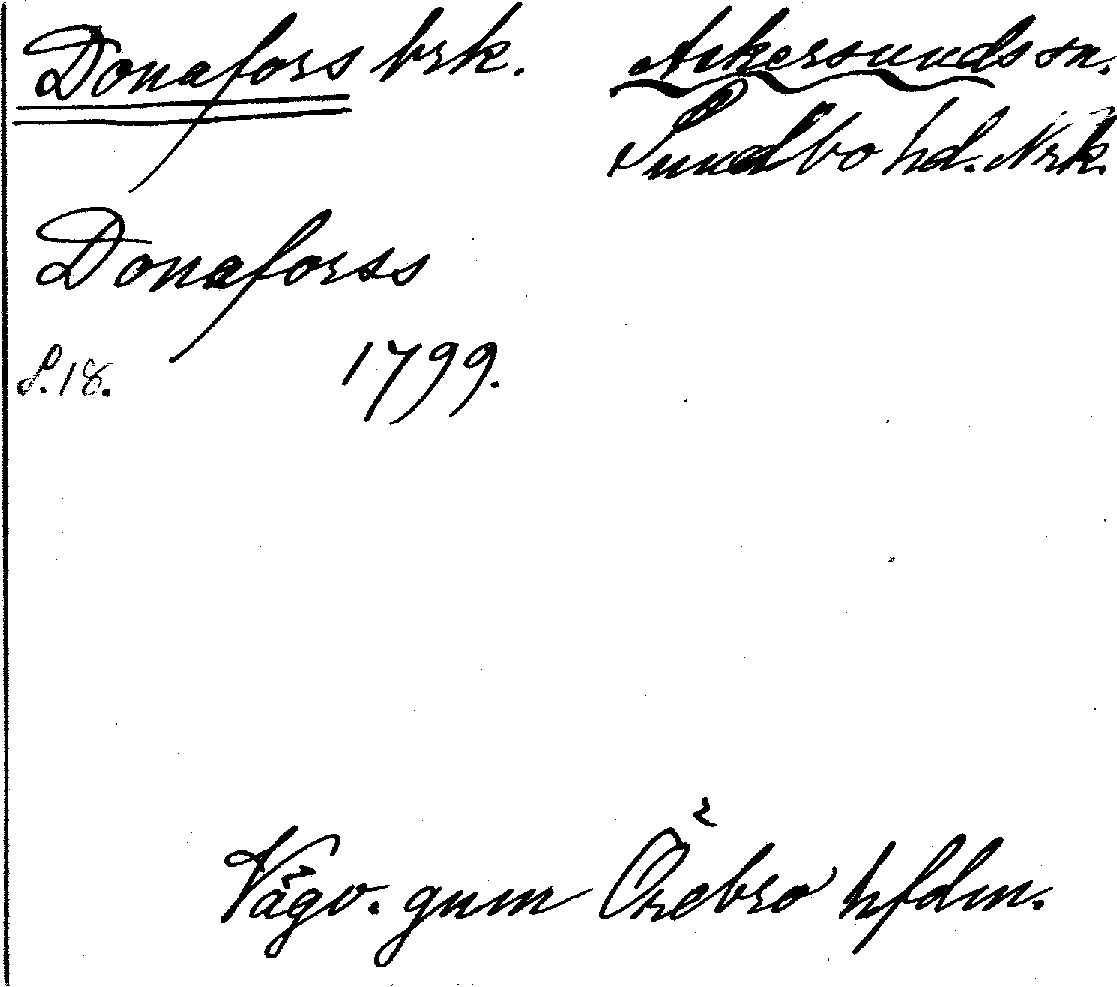 Donafors brk. Askersunds sn.
Sundbo hd. Nrk.
Donaforss
S. 18. 1799.
Vägv. gnm Örebro hfdm.